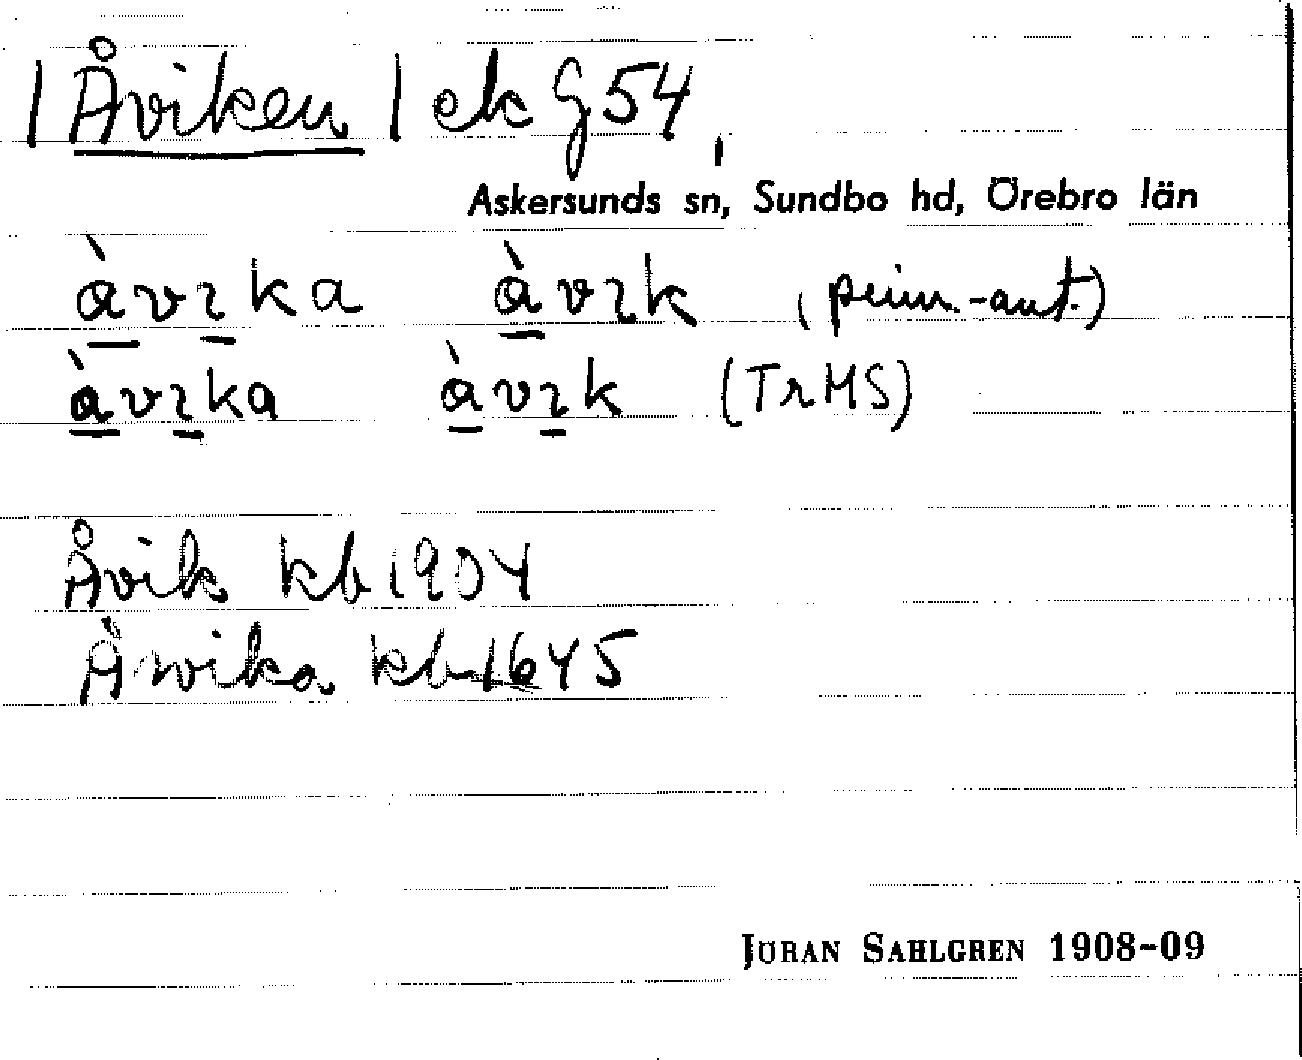 | Åviken | ek G 54,
Askersunds sn, Sundbo hd, Örebro län
àvıka àvık (prim.-ant.)
àvıka àvık (TrMS)
Åvik kb 1904
Åwika kb 1645
JÖRAN SAHLGREN 1908-09